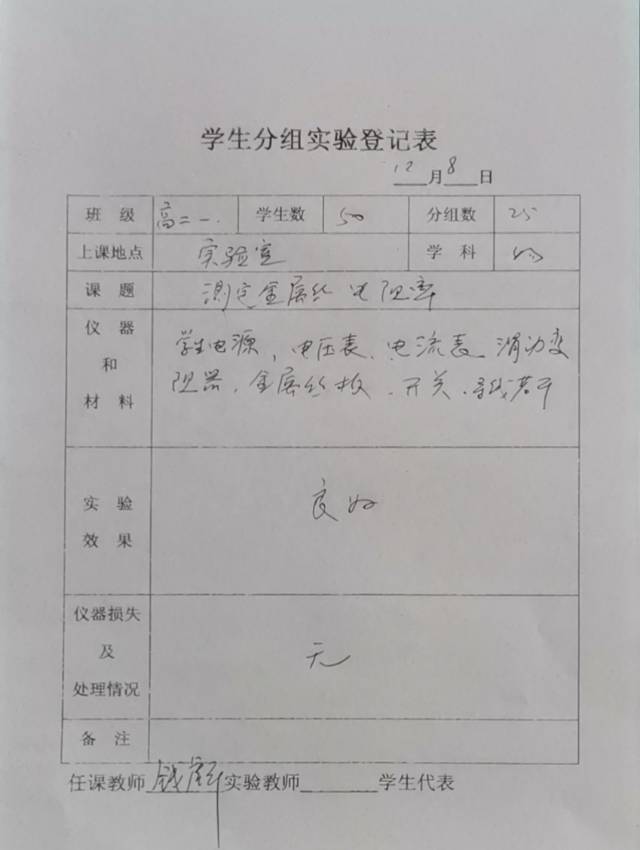 学生分组实验登记表
12月8日
班 级 高二一. 学生数 50 分组数 25
上课地点 实验室 学 科 物
课 题 测定金属丝电阻率
仪 器 和 材 料
学生电源、电压表、电流表、滑动变
阻器、金属丝板、开关、导线若干
实 验 效 果 良好
仪器损失 及 处理情况 无
备 注
任课教师 实验教师 学生代表